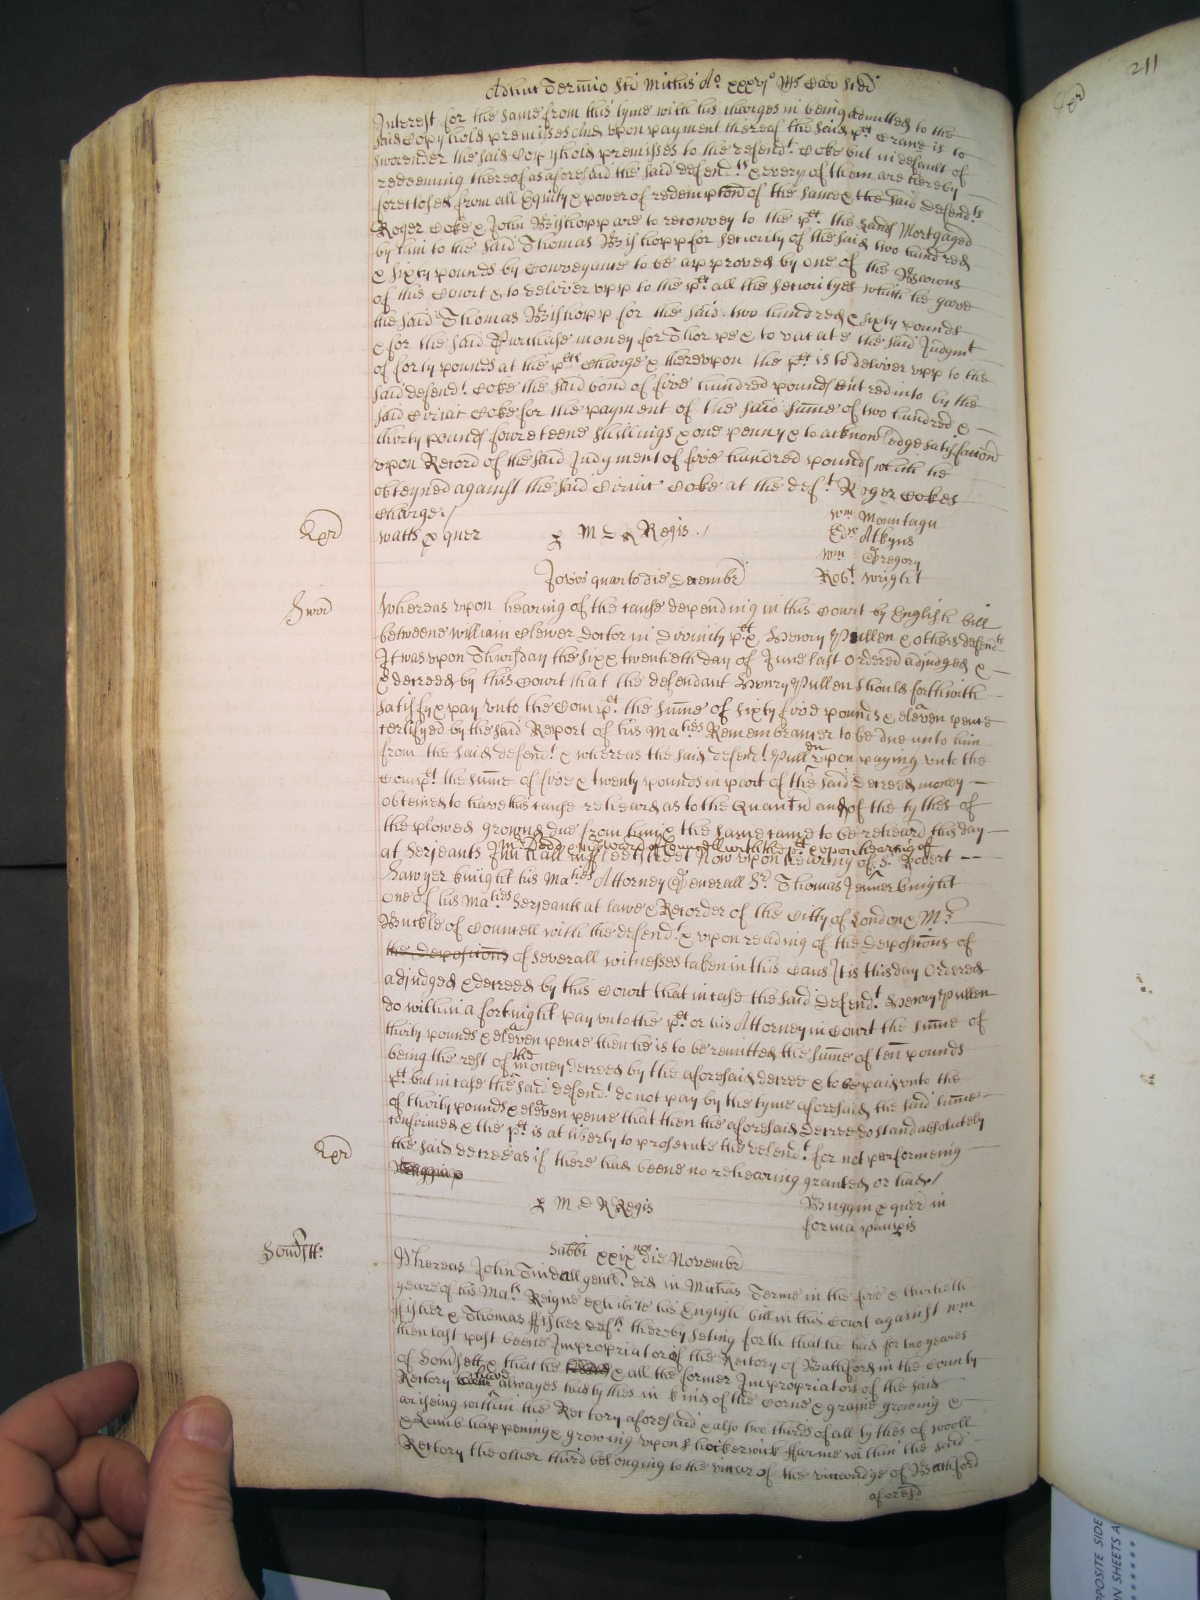 Adhuc Termino Sci Michis Ao xxxvjo Rs Caro Scdi
211
Interest for the same from this tyme with his charges in being admitted to the
said Copyhold premisses And upon payment thereof the said plt Crane is to
surrender the said Copyhold premisses to the defendt Coke but in default of
redeeming thereof as aforesaid the said defendts & every of them are hereby
foreclosed from all Equity & power of redempcon of the same & the said defendts
Roger Coke & John Bishopp are to reconvey to the plt the Lands Mortgaged
by him to the said Thomas Bishopp for security of the said two hundred
& sixty pounds by Conveyance to be approved by one of the Barons
of this Court & to deliver upp to the plt all the securityes which he gave
the said Thomas Bishopp for the said two hundred & sixty pounds
& for the said Purchase money for Thorpe & to vacate the said Judgmt
of forty pounds at the plts Charge & thereupon the plt is to deliver upp to the
said defendt Coke the said bond of five hundred pounds entred into by the
said Ciriac Coke for the payment of the said summe of two hundred &
thirty pounds fowreteene shillings & one penny & to acknowledge satisfaccon
upon Record of the said Judgment of five hundred pounds which he
obteyned against the said Ciriac Coke at the deft Roger Cokes
Charge /
Exr
Watts p quer
p M D R Regis /
Wm Mountagu
Edw Atkyns
Wm Gregory
Robt Wright
Jovis quarto die Decembr
Whereas upon hearing of the cause depending in this Court by English bill
betweene William Clewer Doctor in Divinity plt & Henry Pullen & others defendts
It was upon Thursday the six & twentieth day of June last Ordered adjudged &
& decreed by this Court that the defendant Henry Pullen should forthwith
satisfy & pay unto the Complt the summe of sixty five pounds & eleven pence
certifyed by the said Report of his Maties Remembrancer to be due unto him
from the said defendt & whereas the said defendt Pullen upon paying unto the
Complt the summe of five & twenty pounds in part of the said decreed money
obteined to have this cause reheard as to the Quantu and of the tythes of
the plowed grownd due from him & the same came to be reheard this day
at Serjeants Inn hall in Fleetstreet Now upon hearing of Sr Robert
Sawyer knight his Maties Attorney Generall Sr Thomas Jenner knight
one of his Maties Serjeants at lawe & Recorder of the Citty of London & Mr
Buckle of Councell with the defendt & upon reading of the deposicons of
the deposicons of severall witnesses taken in this Caus It is this day Ordered
adjudged & decreed by this Court that in case the said defendt Henry Pullen
do within a fortnight pay unto the plt or his Attorney in Court the summe of
thirty pounds & eleven pence then he is to be remitted the summe of tenn pounds
being the rest of the money decreed by the aforesaid decree & to be paid unto the
plt but in case the said defendt do not pay by the tyme aforesaid the said summe
of thirty pounds & eleven pence that then the aforesaid decree do stand absolutely
confirmed & the plt is at liberty to prosecute the defendt for not performeing
the said decree as if there had beene no rehearing granted or had /
Exr
p M D R Regis
Buggin p quer in
forma paupis
Somsett:
Sabbi xxixno die Novembr
Whereas John Tindall gentl did in Michas Terme in the five & thirtieth
yeare of his Mats Reigne exhibite his English bill in this Court against Wm
Fisher & Thomas Fisher defts thereby seting forth that he had for two yeares
then last past beene Impropriator of the Rectory of Bathford in the County
of Somsett & that he & all the former Impropriators of the said
Rectory have alwayes had tythes in kind of the Corne & graine growing &
ariseing within the Rectory aforesaid & also two thirds of all tythes of wooll
& Lamb happening & growing upon Shockerwick Farme within the said
Rectory the other third belonging to the vicar of the vicaridge of Bathford
aforesd